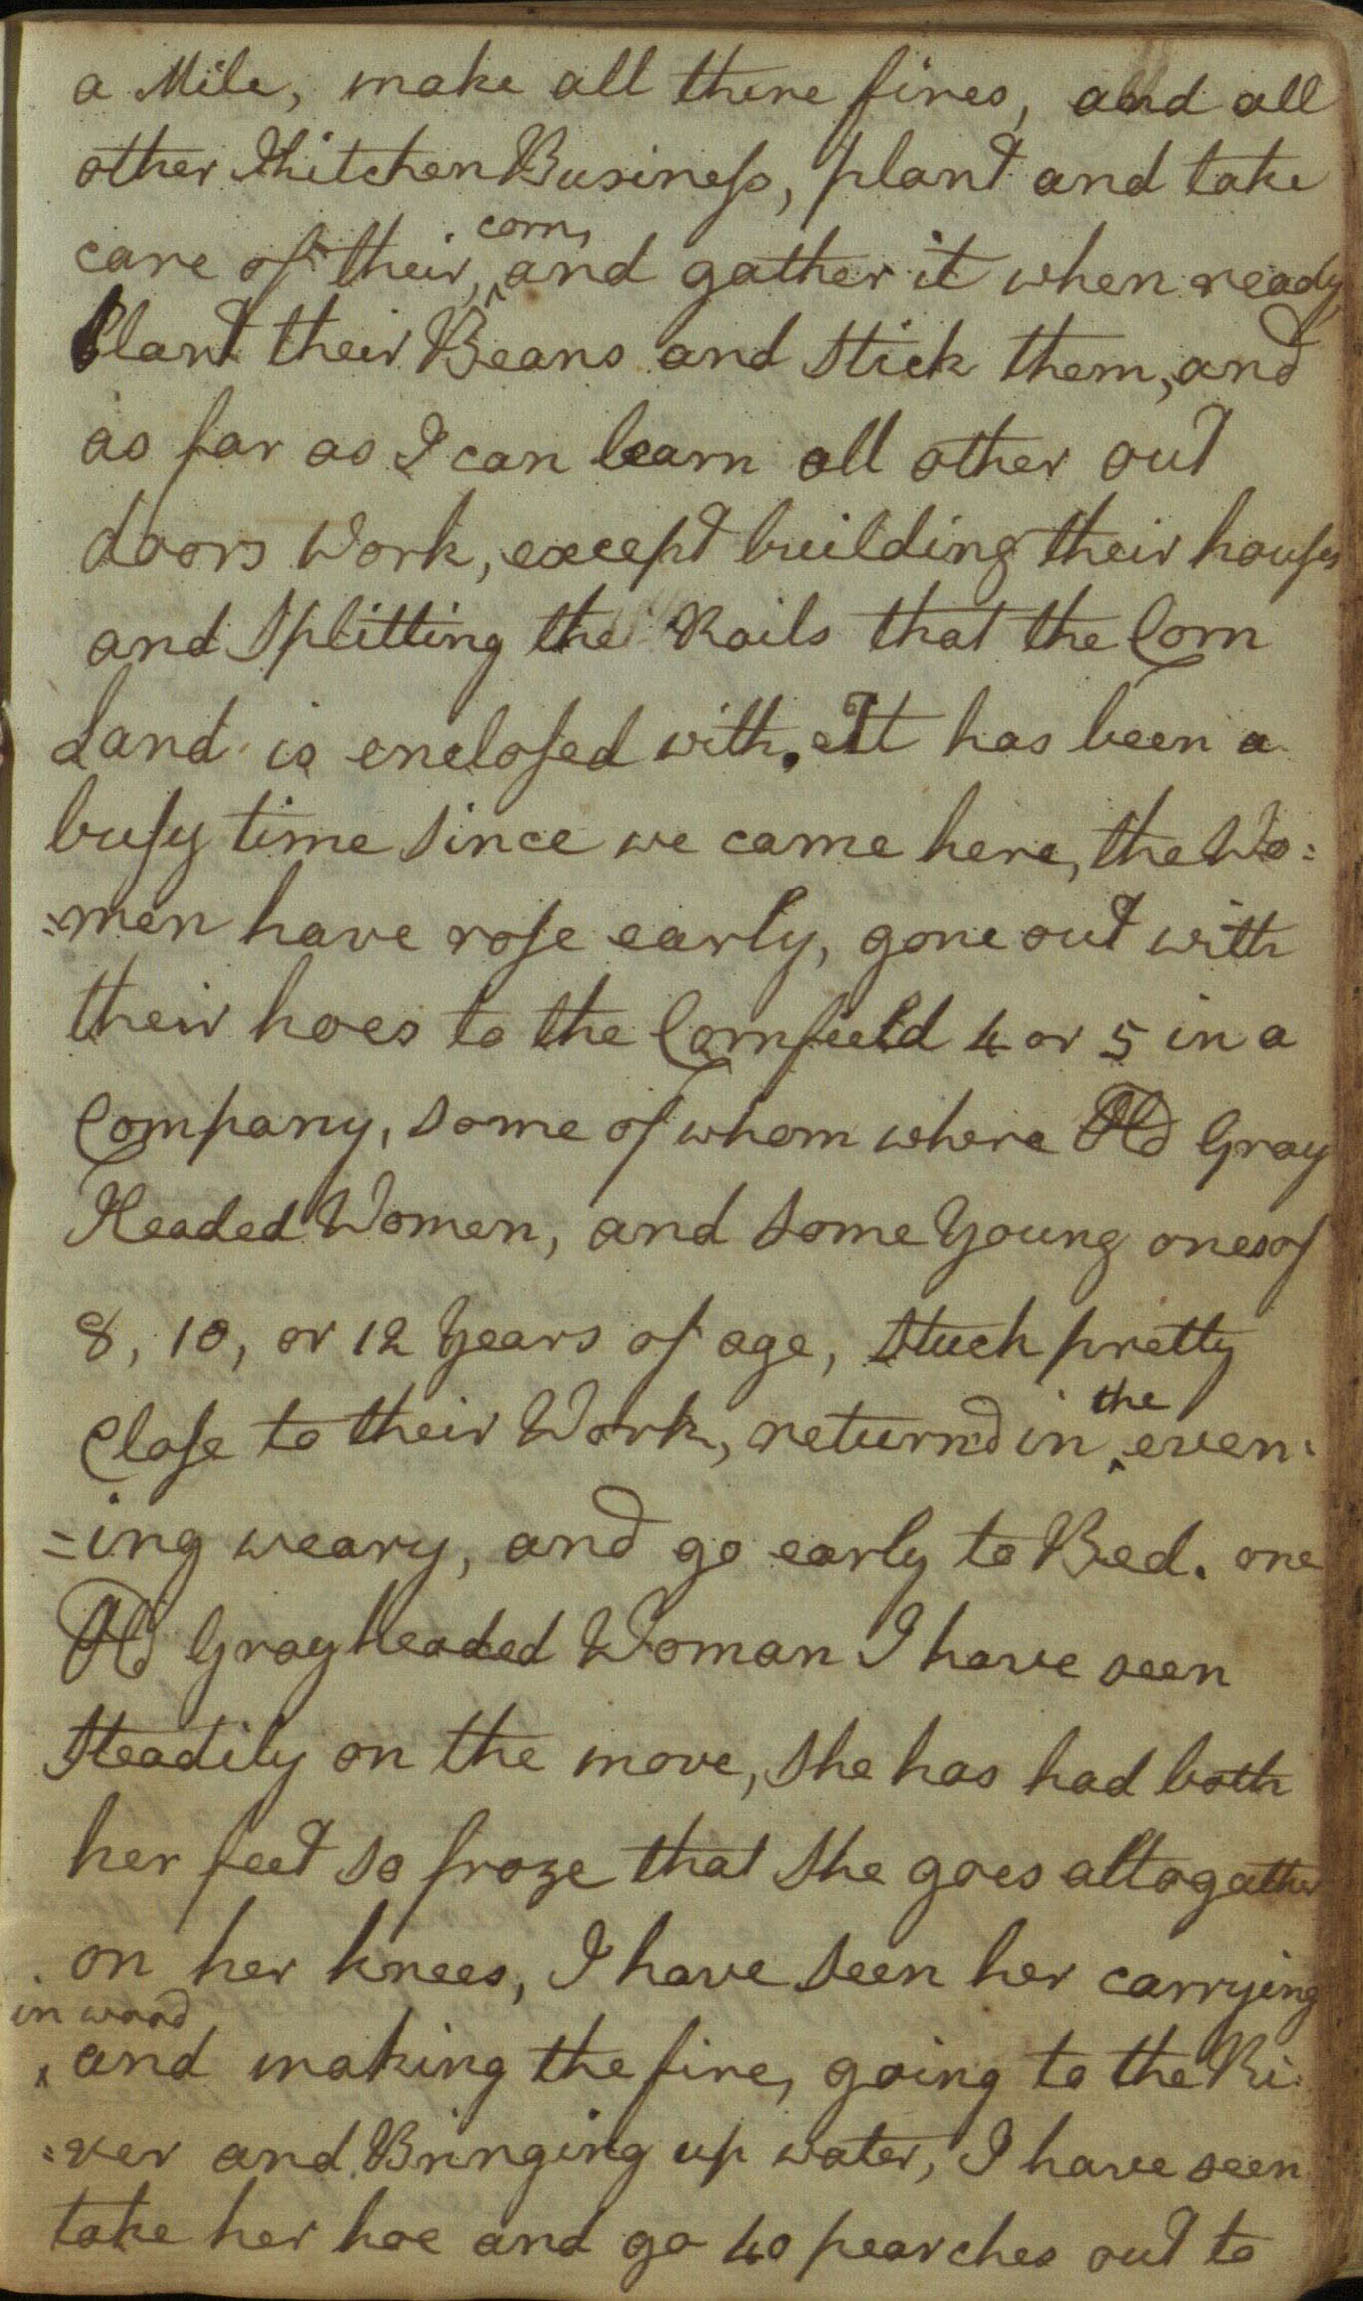 a Mile, make all there fires, and all
other Khitchen Business, plant and take
care of their, corn, and gather it when ready,
Plant their Beans and stick them, and
as far as I can learn all other out
doors Work, except building their houses
and Splitting the Rails that the Corn
Land is enclosed with. It has been a
busy time since we came here, the Wo=
=men have rose early, gone out with
their hoes to the Cornfield 4 or 5 in a
Company, some of whom where Old Gray
Headed Women, and some Young ones of
8, 10, or 12 Years of age, stuck pretty
Close to their Work, returnd in the even=
=ing weary, and go early to Bed. one
Old Grayheaded Woman I have seen
Steadily on the move, she has had both
her feet so froze that she goes altogather
on her knees, I have seen her carrying
in wood and making the fire, going to the Ri=
=ver and Bringing up water, I have seen
take her hoe and go 40 pearches out to